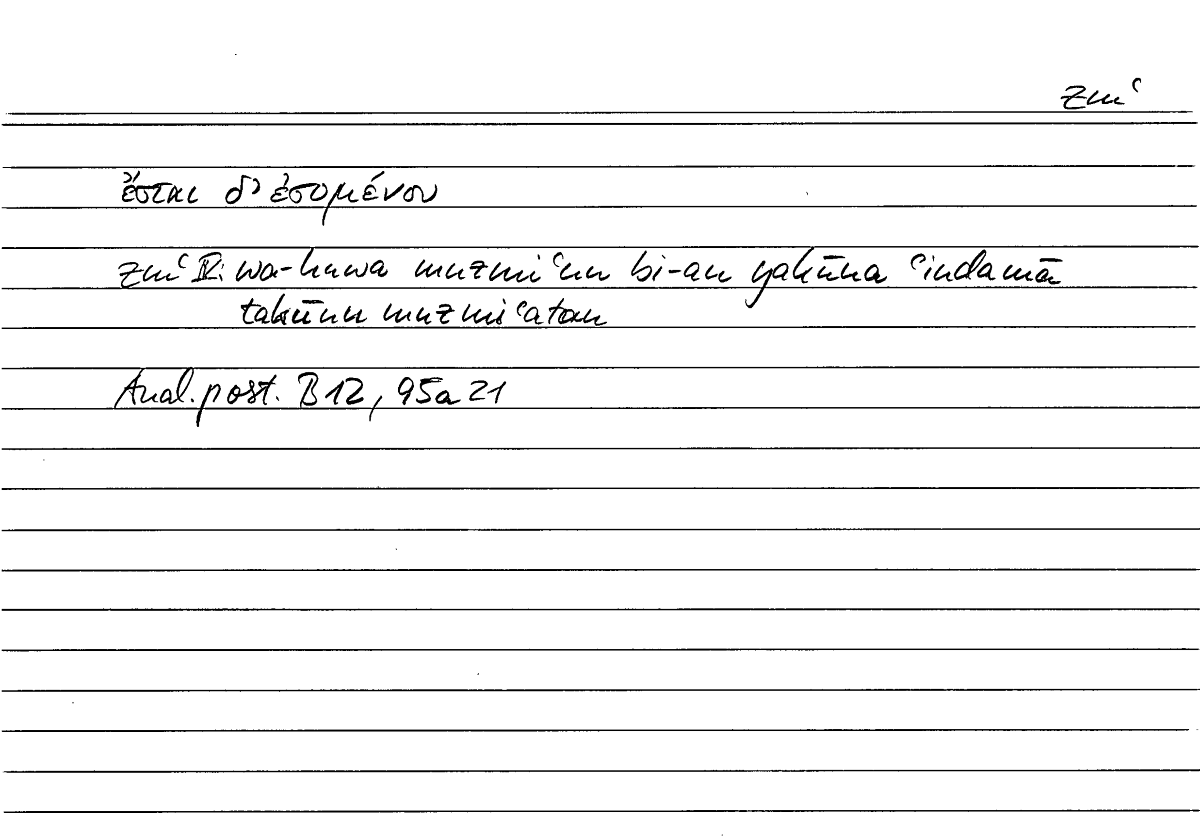 zmʿ
ἔσται δ’ ἐσομένου
zmʿ IV: wa-huwa muzmiʿun bi-an yakūna ʿindamā
takūnu muzmiʿatan
Anal. post. B 12, 95a21